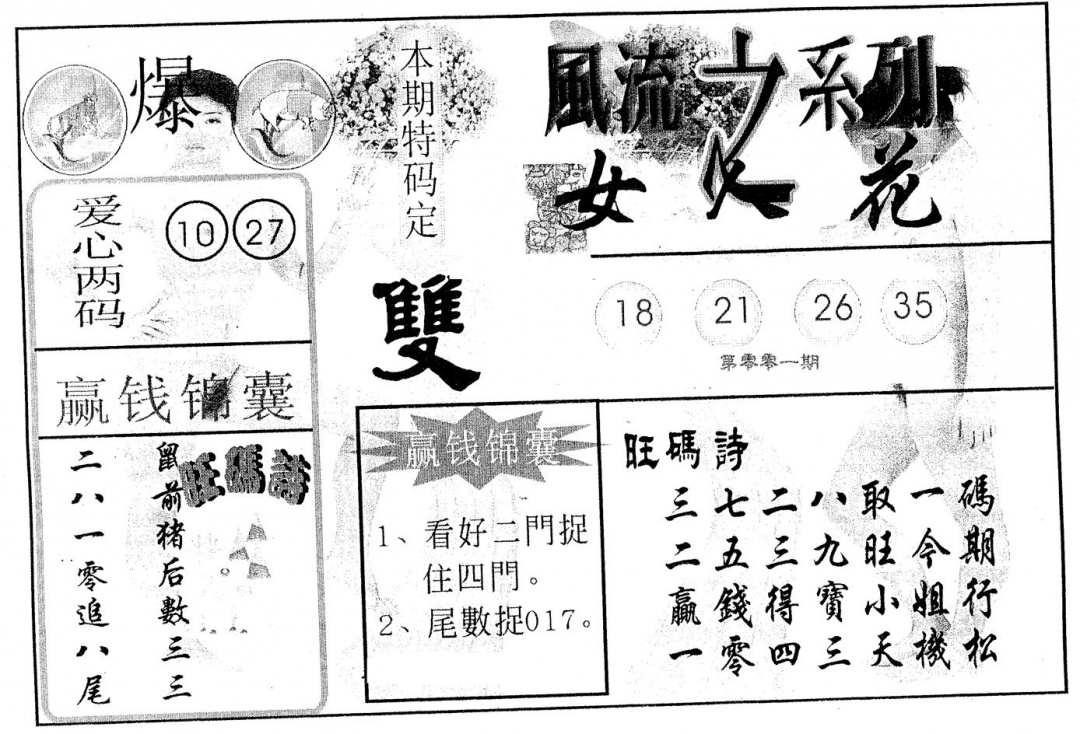 爆
爱心两码
10 27
赢钱锦囊
旺碼詩
鼠前猪后數三三
二八一零追八尾
本期特码定
雙
風流之系列
女人花
18 21 26 35
第零零一期
赢钱锦囊
1、看好二門捉
住四門。
2、尾數捉017。
旺碼詩
三七二八取一碼
二五三九旺今期
贏錢得寶小姐行
一零四三天機松